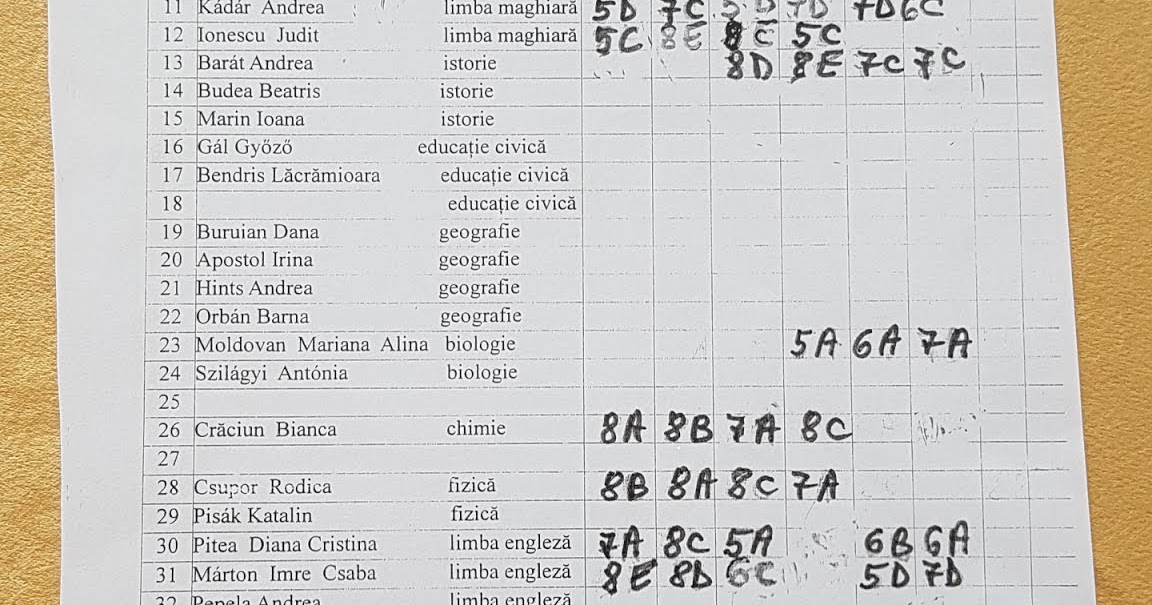 11 Kádár Andrea limba maghiară 5D 7C 5D 7D 7D 6C
12 Ionescu Judit limba maghiară 5C 8E 8C 5C
13 Barát Andrea istorie 8D 8E 7C 7C
14 Budea Beatris istorie
15 Marin Ioana istorie
16 Gál Győző educație civică
17 Bendris Lăcrămioara educație civică
18 educație civică
19 Buruian Dana geografie
20 Apostol Irina geografie
21 Hints Andrea geografie
22 Orbán Barna geografie
23 Moldovan Mariana Alina biologie 5A 6A 7A
24 Szilágyi Antónia biologie
25
26 Crăciun Bianca chimie 8A 8B 7A 8C
27
28 Csupor Rodica fizică 8B 8A 8C 7A
29 Pisák Katalin fizică
30 Pitea Diana Cristina limba engleză 7A 8C 5A 6B 6A
31 Márton Imre Csaba limba engleză 8E 8D 6C 5D 7D
32 Andrea limba engleză